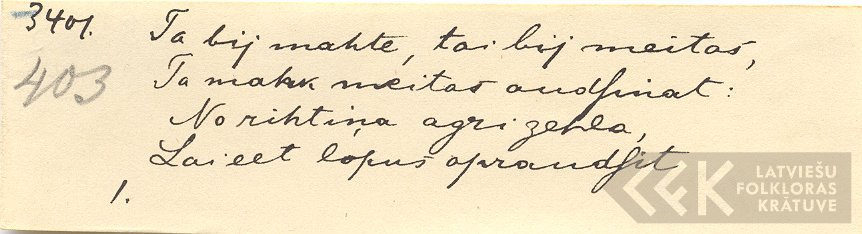 3401.
403
Ta bij mahte, tai bij meitas,
Ta mahk meitas audsinat:
No rihtiņa agri zehla,
Lai eet lopus apraudsit
1.
LATVIEŠU
FOLKLORAS
KRĀTUVE